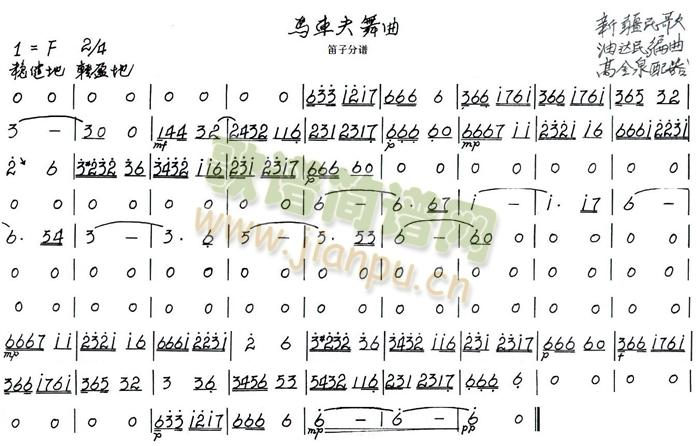 马车夫舞曲
笛子分谱
新疆民歌
油达民编曲
高全泉配器
1 = F 2/4
稳健地 轻盈地
0 0 | 0 0 | 0 0 | 0 0 | 633 i217 | 666 6 | 366 i76i | 366 i76i | 365 32 |
3 - | 30 0 | 144 32 | 2432 116 | 231 2317 | 666 60 | 6667 ii | 232i i6 | 666i 223i |
2 6 | 3#232 36 | 3432 ii6 | 23i 2317 | 666 60 | 0 0 | 0 0 | 0 0 | 0 0 |
0 0 | 0 0 | 0 0 | 0 0 | 6 - | 6. 67 | i - | i. i7 | 6 - |
6. 54 | 3 - | 3. 6 | 5 - | 5. 53 | 6 - | 60 0 | 0 0 | 0 0 |
0 0 | 0 0 | 0 0 | 0 0 | 0 0 | 0 0 | 0 0 | 0 0 | 0 0 |
0 0 | 0 0 | 0 0 | 0 0 | 0 0 | 0 0 | 0 0 | 0 0 | 0 0 |
6667 ii | 232i i6 | 666i 223i | 2 6 | 3#232 36 | 3432 ii6 | 23i 2317 | 666 60 | 366 i76i |
366 i76i | 365 32 | 3 36 | 3456 53 | 5432 116 | 231 2317 | 666 6 | 0 0 | 0 0 |
0 0 | 0 0 | 633 i217 | 666 6 | 6 - | 6 - | 6 0 ‖
歌谱简谱网
www.jianpu.cn